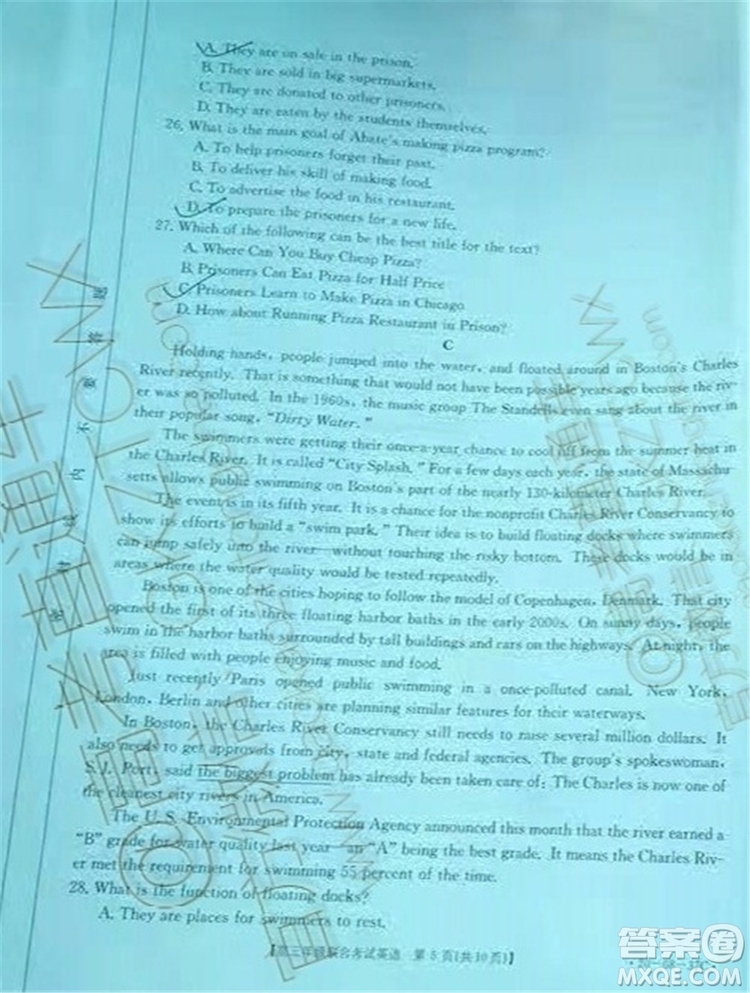 A. They are on sale in the prison.
B. They are sold in big supermarkets.
C. They are donated to other prisoners.
D. They are eaten by the students themselves.
26. What is the main goal of Abate's making pizza program?
A. To help prisoners forget their past.
B. To deliver his skill of making food.
C. To advertise the food in his restaurant.
D. To prepare the prisoners for a new life.
27. Which of the following can be the best title for the text?
A. Where Can You Buy Cheap Pizza?
B. Prisoners Can Eat Pizza for Half Price
C. Prisoners Learn to Make Pizza in Chicago
D. How about Running Pizza Restaurant in Prison?
C
Holding hands, people jumped into the water, and floated around in Boston's Charles
River recently. That is something that would not have been possible years ago because the riv-
er was so polluted. In the 1960s, the music group The Standells even sang about the river in
their popular song, "Dirty Water."
The swimmers were getting their once-a-year chance to cool off from the summer heat in
the Charles River. It is called "City Splash." For a few days each year, the state of Massachu-
setts allows public swimming on Boston's part of the nearly 130-kilometer Charles River.
The event is in its fifth year. It is a chance for the nonprofit Charles River Conservancy to
show its efforts to build a "swim park." Their idea is to build floating docks where swimmers
can jump safely into the river—without touching the risky bottom. These docks would be in
areas where the water quality would be tested repeatedly.
Boston is one of the cities hoping to follow the model of Copenhagen, Denmark. That city
opened the first of its three floating harbor baths in the early 2000s. On sunny days, people
swim in the harbor baths surrounded by tall buildings and cars on the highways. At night, the
area is filled with people enjoying music and food.
Just recently Paris opened public swimming in a once-polluted canal. New York,
London, Berlin and other cities are planning similar features for their waterways.
In Boston, the Charles River Conservancy still needs to raise several million dollars. It
also needs to get approvals from city, state and federal agencies. The group's spokeswoman,
S. J. Port, said the biggest problem has already been taken care of: The Charles is now one of
the cleanest city rivers in America.
The U. S. Environmental Protection Agency announced this month that the river earned a
"B" grade for water quality last year—an "A" being the best grade. It means the Charles Riv-
er met the requirement for swimming 55 percent of the time.
28. What is the function of floating docks?
A. They are places for swimmers to rest.
【高三年级联合考试英语 第 5 页(共 10 页)】
答案圈
MXQE.COM